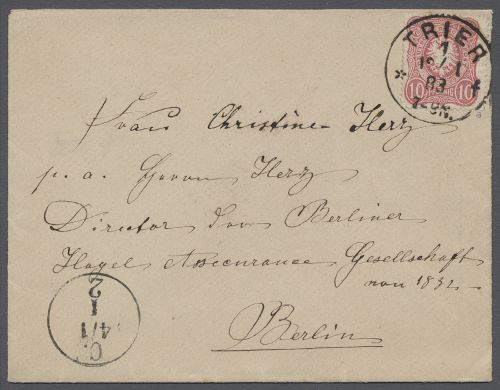 TRIER
1
12/1
83
7-8N.
* f
10 10
Frau Christine Herz
p. a. Herrn Herz
Director der Berliner
Hagel Assecurance Gesellschaft
von 1832
Berlin
4/1
1
2